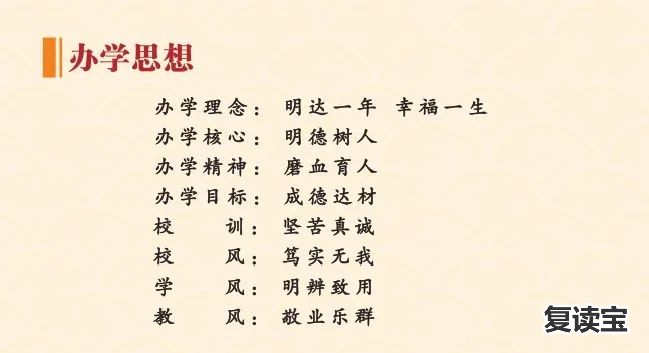 办学思想
办学理念：明达一年 幸福一生
办学核心：明德树人
办学精神：磨血育人
办学目标：成德达材
校训：坚苦真诚
校风：笃实无我
学风：明辨致用
教风：敬业乐群
复读宝